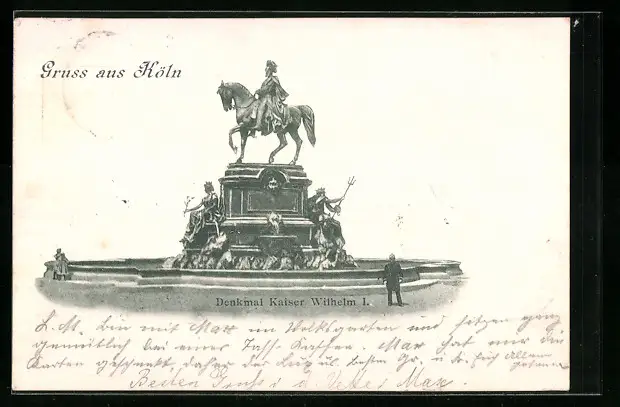 Gruss aus Köln
Denkmal Kaiser Wilhelm I.
L. M. bin mit Max im Volksgarten und sitzen ganz
gemütlich bei einer Tass Kaffee. Max hat mir die
Karten geschenkt, daher der
Besten Gruss Vetter Max.